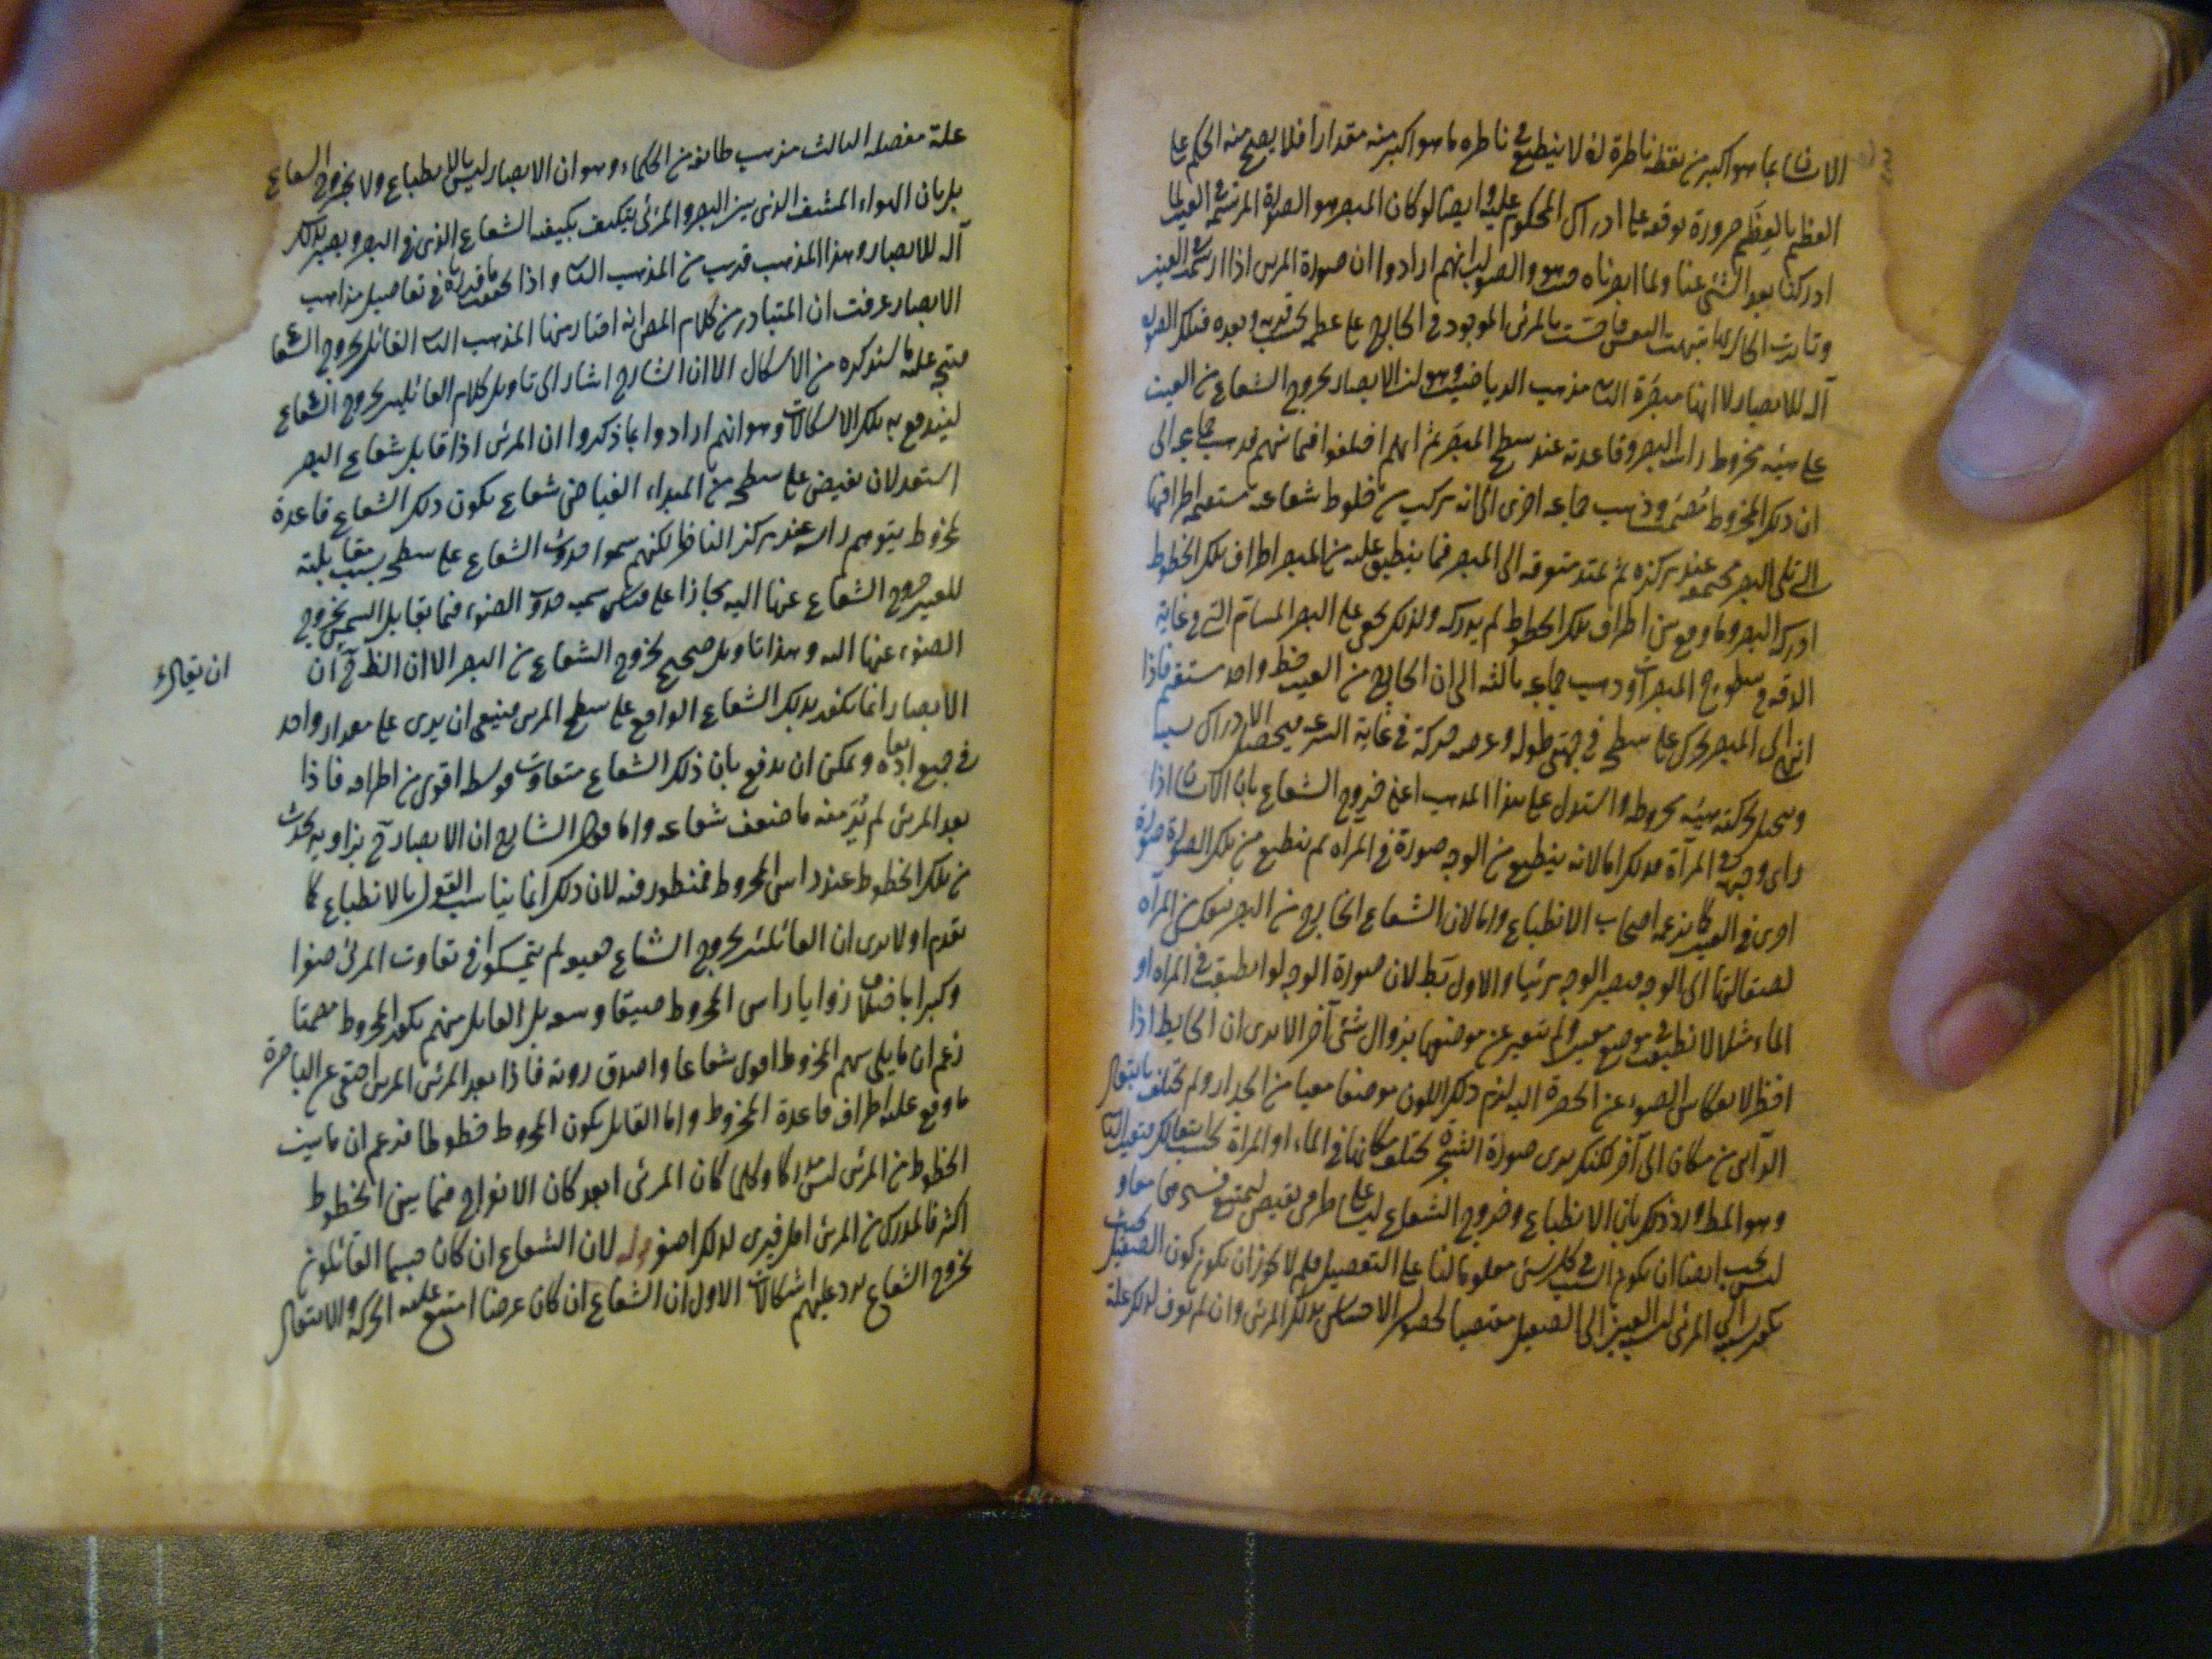 الانسان بما هو اكبر من نقطه ناظرة له لا ينطبع في ناظره ما هو اكبر منه مقدارا فلا يصح منه الحكم على
العظم بالعظم ضرورة توقفه على ادراك المحكوم عليه وايضا لو كان المبصر هو الصورة المرتسمة في العين لما
ادركنا بعد الشئ عنا ولما ابصرناه حيث هو والصواب انهم ارادوا ان صورة المرئى اذا ارتسمت في العين
وتأدت الى تنبهت النفس فاحست بالمرئى الموجود في الخارج على عظمه بحسب قربه وبعده فتلك الصورة
آلة للابصار لا انها مبصرة الثانى مذهب الرياضيين وهو ان الابصار بخروج الشعاع من العين
على هيئة مخروط راسه البصر وقاعدته عند سطح المبصر ثم انهم اختلفوا فيما بينهم فذهب جماعة الى
ان ذلك المخروط مصمت وذهب جماعة اخرى الى انه مركب من خطوط شعاعية مستقيمة اطرافها
التى تلى البصر مجتمعة عند مركزه ثم تمتد متفرقة الى المبصر فما ينطبق عليه من المبصر اطراف تلك الخطوط
ادركه البصر وما وقع بين اطراف تلك الخطوط لم يدركه ولذلك يخفى على البصر المسام التى في غاية
الدقة في سطوح المبصرات وذهب جماعة ثالثة الى ان الخارج من العين خط واحد مستقيم فاذا
انتهى الى المبصر تحرك على سطحه في جهتى طوله وعرضه حركة في غاية السرعة فيحصل الادراك بسببها
ويتخيل بحركته هيئة مخروطة واستدل على هذا المذهب اعنى خروج الشعاع بان الانسان اذا
راى وجهه في المرآة فذلك اما لانه ينطبع من الوجه صورة في المرآة ثم ينطبع من تلك الصورة صورة
اخرى في العين كما يزعمه اصحاب الانطباع واما لان الشعاع الخارج من البصر ينعكس من المرآة
لصقالتها الى الوجه فيصير الوجه مرئيا والاول بط لان صورة الوجه لو انطبعت في المرآة او
الماء مثلا لانطبعت في موضع معين ولم تتغير عن موضعها بزوال شئ آخر الا يرى ان الحايط اذا
اخضر لانعكاس الضوء عن الخضرة اليه لزم ذلك اللون موضعا معينا من الجدار ولم يختلف بانتقال
الرآئى من مكان الى آخر لكنك يرى صورة الشجرة يختلف مكانها في الماء او المرآة بحسب انتقالك فتعين الثانى
وهو المط ورد ذلك بان الانطباع وخروج الشعاع ليسا على طرفى نقيض ليمتنع فسادهما معا و
ليس يجب ايضا ان يكون السبب في كل شئ معلوما لنا على التفصيل فلم لا يجوز ان يكون كون الصقيل بحيث
يكون نسبته الى المرئى كنسبة العين الى الصقيل مقتضيا لحصول الاحساس بذلك المرئى وان لم نعرف لذلك علة
علة مفصلة الثالث مذهب طائفة من الحكماء وهو ان الابصار ليس بالانطباع ولا بخروج الشعاع
بل بان الهواء المشف الذى بين البصر والمرئى يتكيف بكيفية الشعاع الذى في البصر ويصير بذلك
آلة للابصار وهذا المذهب قريب من المذهب الثانى واذا تحققت ما قررناه في تفاصيل مذاهب
الابصار عرفت ان المتبادر من كلام المص انه اختار منها المذهب الثانى القائل بخروج الشعاع
فيتجه عليه ما سنذكره من الاشكال الا ان الشارح اشار الى تاويل كلام القائلين بخروج الشعاع
ليندفع به تلك الاشكالات وهو انهم ارادوا بما ذكروا ان المرئى اذا قابل شعاع البصر
استعد لان يفيض على سطحه من المبداء الفياض شعاع يكون ذلك الشعاع قاعدة
مخروط يتوهم راسه عند مركز الناظر لكنهم سموا حدوث الشعاع على سطحه بسبب مقابلته
للعين خروج الشعاع عنها اليه مجازا على قياس تسميه حدوث الضوء فيما يقابل الشمس بخروج
الضوء عنها اليه وهذا تاويل صحيح لخروج الشعاع من البصر الا ان الظ ح ان
ان يقال
الابصار انما يكون بذلك الشعاع الواقع على سطح المرئى فينبغى ان يرى على مقدار واحد
في جميع ابعاده ويمكن ان يدفع بان ذلك الشعاع متفاوت فوسطه اقوى من اطرافه فاذا
بعد المرئى لم يُرَ منه ما ضعف شعاعه واما قول الشارح ان الابصار ح بزاوية يحدث
من تلك الخطوط عند راس المخروط فمنظور فيه لان ذلك انما يناسب القول بالانطباع كما
تقدم اولا يرى ان القائلين بخروج الشعاع حقيقة لم يتمسكوا في تفاوت المرئى صغرا
وكبرا باختلاف زوايا راس المخروط ضيقا وسعة بل القايل منهم بكون المخروط مصمتا
زعم ان ما يلى سهم المخروط اقوى شعاعا واصدق روية فاذا بعد المرئى اختفى عن الباصرة
ما وقع عليه اطراف قاعدة المخروط واما القايل بكون المخروط خطوطا فزعم ان ما بين
الخطوط من المرئى ليس مدركا وكلما كان المرئى ابعد كان الانفراج فيما بين الخطوط
اكثر فالمدرك من المرئى اقل فيرى لذلك اصغر قوله لان الشعاع ان كان جسما القائلون
بخروج الشعاع يرد عليهم اشكالات الاول ان الشعاع ان كان عرضا امتنع عليه الحركة والانتقال